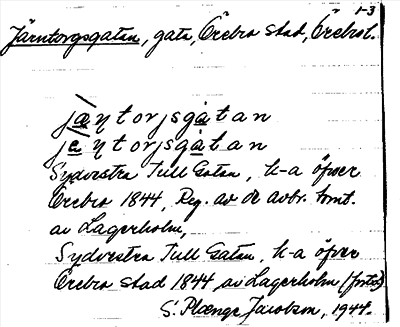 1-3
Järntorgsgatan, gata, Örebro stad, Örebro l.
jæŋtorjsgåtan
jeŋtorjsgåtan
Sydvestra Tull Gatan, k-a öfver
Örebro 1844, Reg. av de avbr. tomt.
av Lagerholm,
Sydvestra Tull Gatan, k-a öfver
Örebro stad 1844 av Lagerholm (fotos)
S. Plænge Jacobson, 1944.